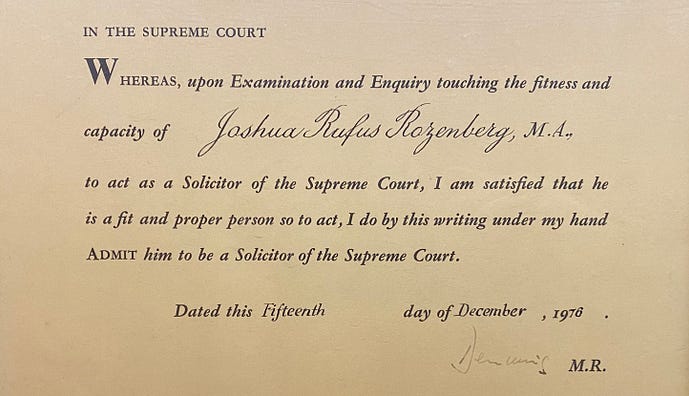 IN THE SUPREME COURT
WHEREAS, upon Examination and Enquiry touching the fitness and
capacity of Joshua Rufus Rozenberg, M.A.,
to act as a Solicitor of the Supreme Court, I am satisfied that he
is a fit and proper person so to act, I do by this writing under my hand
ADMIT him to be a Solicitor of the Supreme Court.
Dated this Fifteenth day of December, 1976.
Denning M.R.